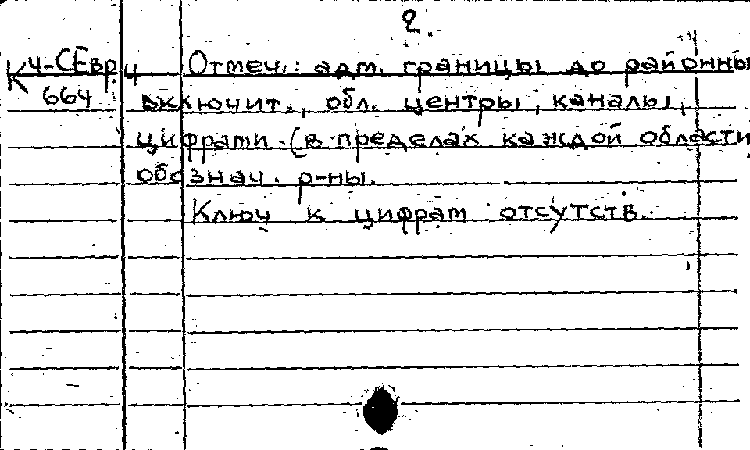 2.
К 4-СЕвр. 4 Отмеч.: адм. границы до районны
664 включит., обл. центры, каналы,
цифрами (в пределах каждой области
обознач. р-ны.
Ключ к цифрам отсутств.